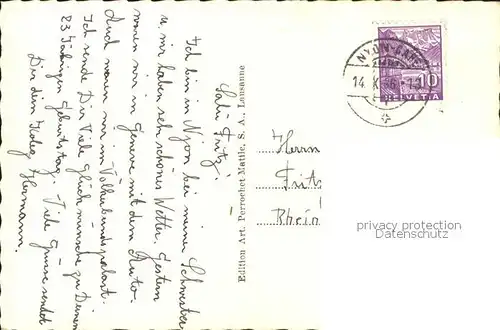 Salü Fritz!
Ich bin in Nyon bei meiner Schwester
u. wir haben sehr schönes Wetter. Gestern
waren wir in Genève mit dem Auto.
Auch waren wir im Völkerbundspalast.
Ich sende Dir Viele Glückwünsche zu Deinem
23 Jährigen Geburtstag. Viele Grüsse sendet
Dir dein Kolleg Hermann.
Edition Art. Perrochet-Matile, S. A., Lausanne
NYON
14. X
10
HELVETIA
Herrn
Fritz
Rhein
privacy protection
Datenschutz